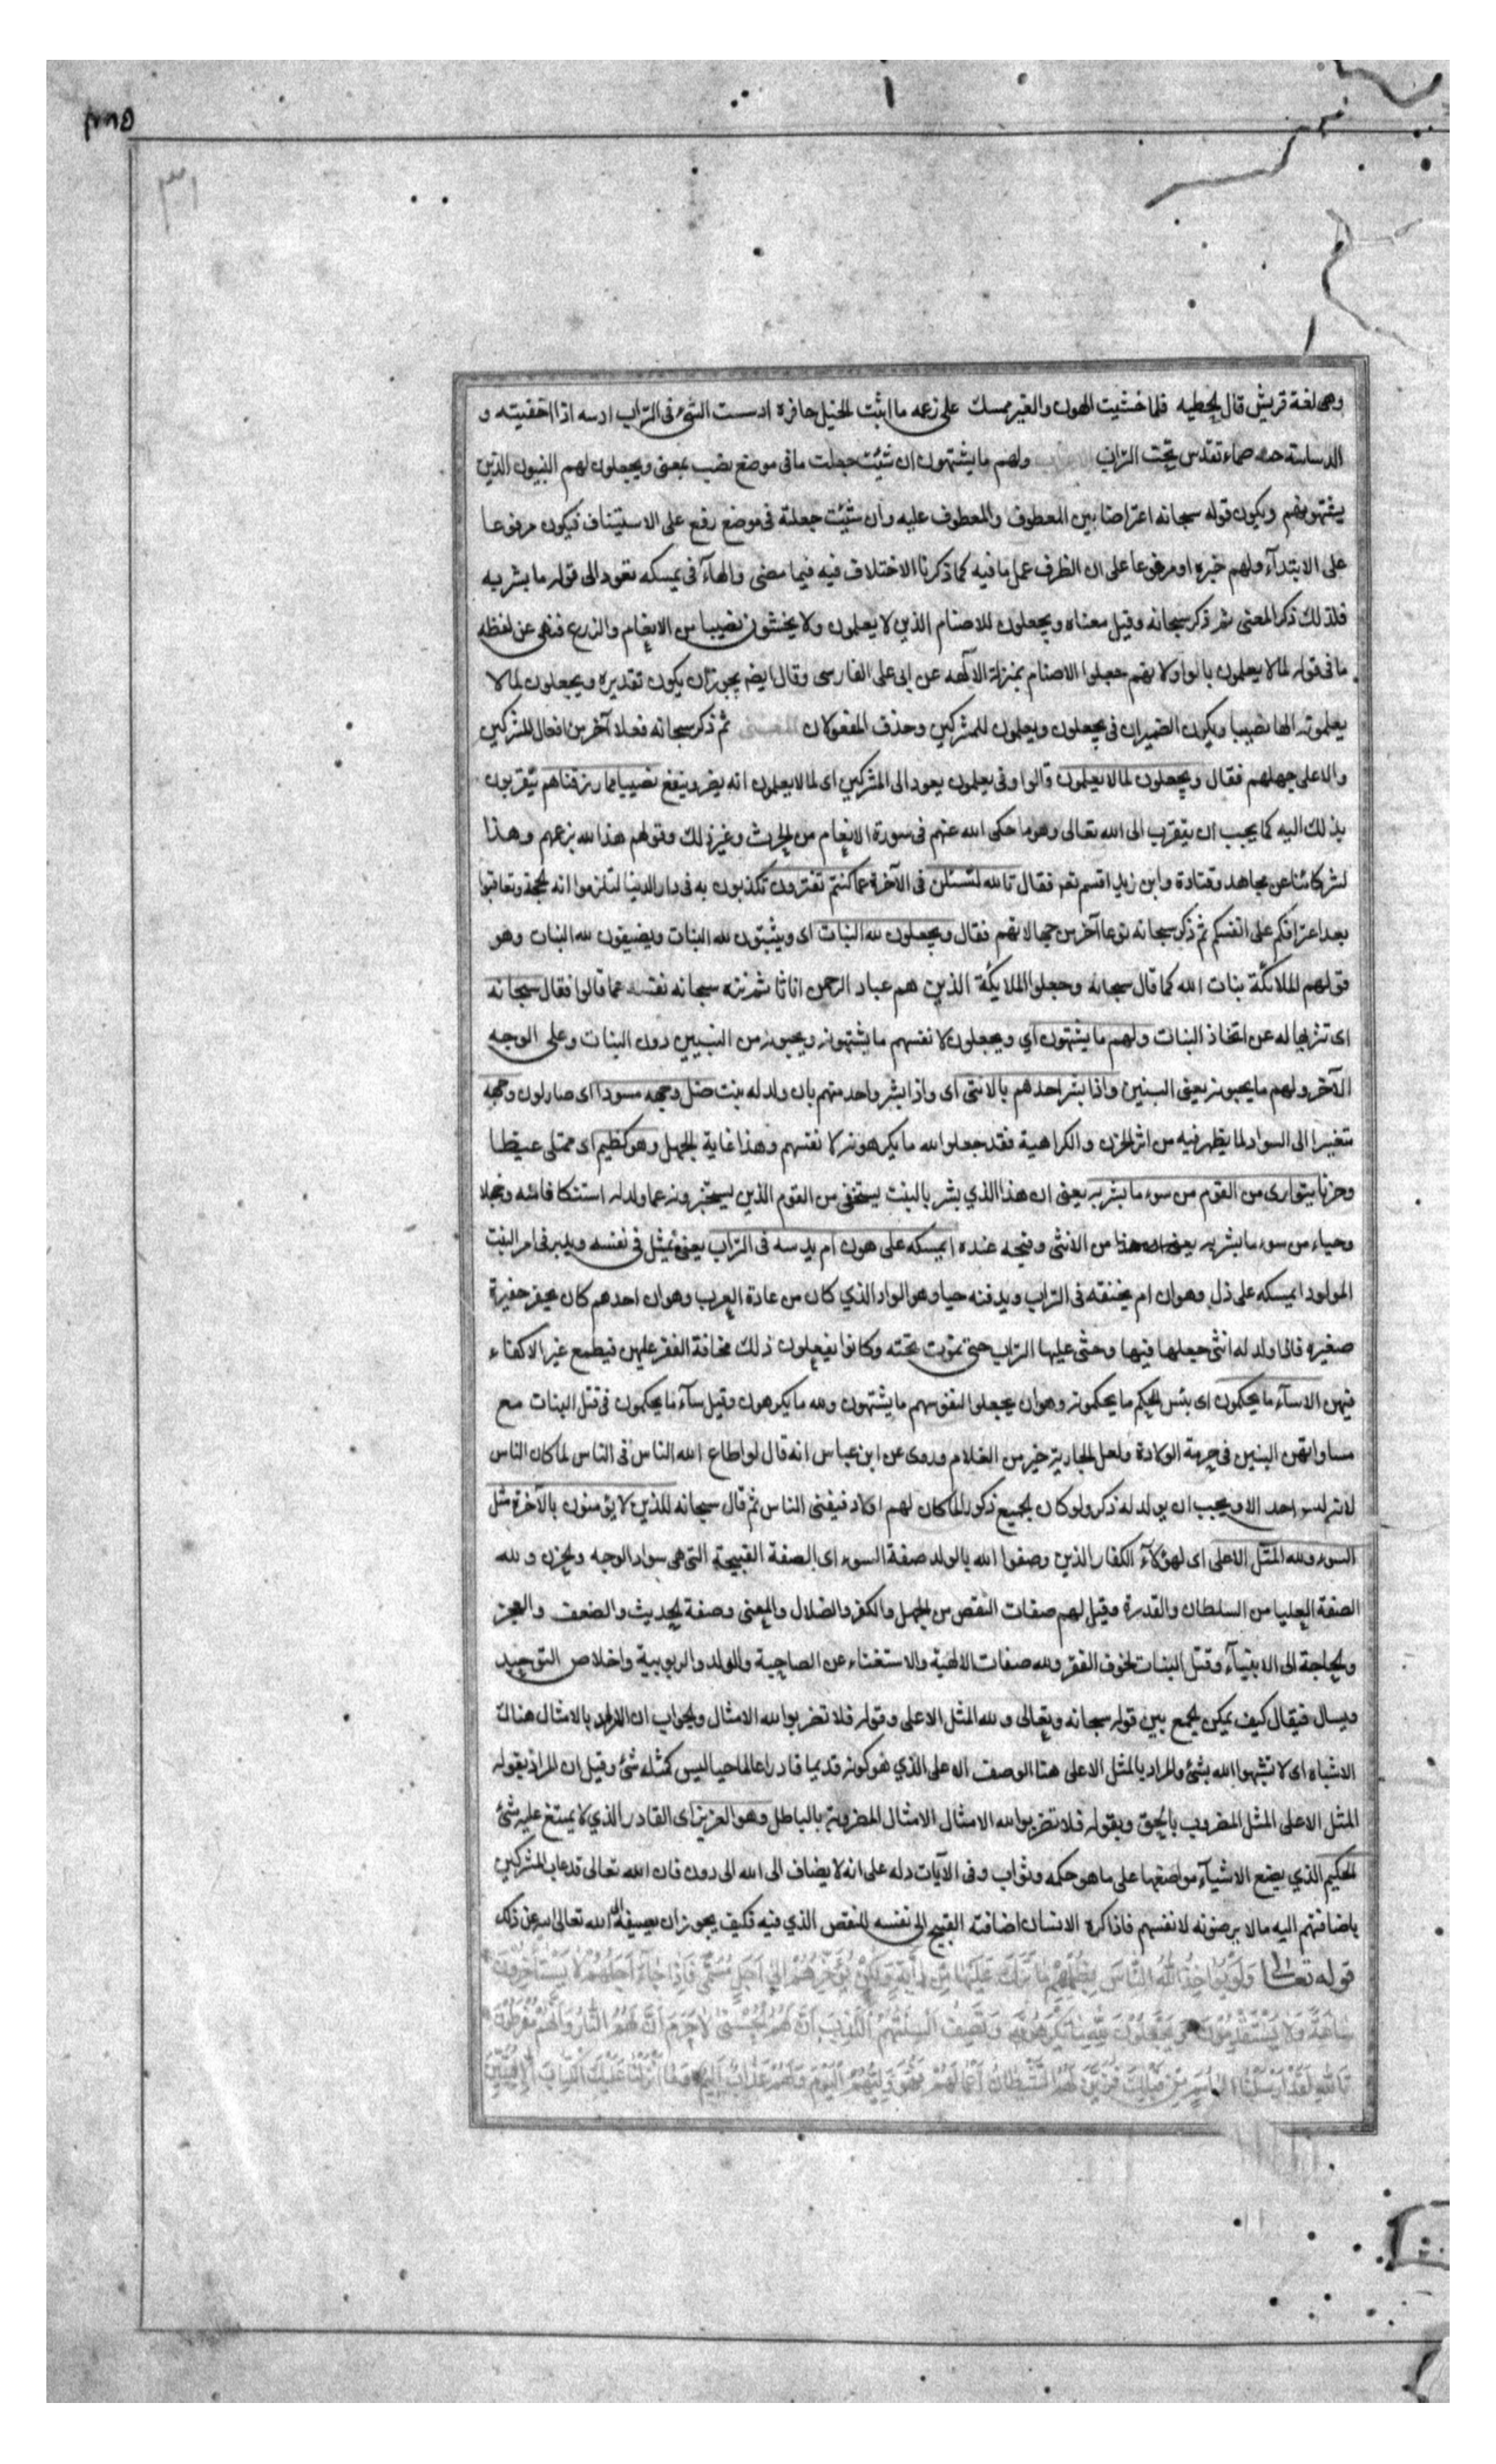 وهى لغة قريش قال الحطيه فلما خشيت الهون والعير ممسك على زعمه ما اثبت الحبل حافره ادسست الشئ فى التراب ادسه اذا اخفيته و
الدساسة حيه صماء تندس تحت التراب الاعراب ولهم ما يشتهون ان شئت جعلت ما فى موضع نصب بمعنى ويجعلون لهم البنون الذين
يشتهونهم ويكون قوله سبحانه اعتراضا بين المعطوف والمعطوف عليه وان شئت جعلته فى موضع رفع على الاستيناف فيكون مرفوعا
على الابتدآء ولهم خبره او مرفوعا على ان الظرف عمل ما فيه كما ذكرنا الاختلاف فيه فيما مضى والهآء فى يمسكه تعود الى قوله ما بشر به
فلذلك ذكر المعنى ثم ذكر سبحانه وقيل معناه ويجعلون للاصنام الذين لا يعلمون ولا يخشون نصيبا من الانعام والزرع فنهى عن لفظه
ما فى قوله لما لا يعلمون بالواو لانهم جعلوا الاصنام بمنزلة الآلهه عن ابى على الفارسى وقال ايضا يجوز ان يكون تقديره ويجعلون لما لا
يعلمونه الها نصيبا ويكون الضميران فى يجعلون ويعلمون للمشركين وحذف المفعولان المعنى ثم ذكر سبحانه فعلا آخر من افعال المشركين
والا على جهلهم فقال ويجعلون لما لا يعلمون والواو فى يعلمون يعود الى المشركين اى لما لا يعلمون انه يضر وينفع نصيبا مما رزقناهم يتقربون
بذلك اليه كما يجب ان يتقرب الى الله تعالى وهو ما حكى الله عنهم فى سورة الانعام من الحرث وغير ذلك وقولهم هذا لله بزعمهم وهذا
لشركائنا عن مجاهد وقتادة وابن زيد اقسم تعه فقال تالله لتسئلن فى الآخرة عما كنتم تفترون تكذبون به فى دار الدنيا لتلزموا انه الحجة وتعاقبوا
بعد اعترافكم على انفسكم ثم ذكر سبحانه نوعا آخر من جهالاتهم فقال ويجعلون لله البنات اى ويثبتون لله البنات ويضيفون لله البنات وهو
قولهم الملائكة بنات الله كما قال سبحانه وجعلوا الملايكة الذين هم عباد الرحمن اناثا ثم نزه سبحانه نفسه عما قالوا فقال سبحانه
اى تنزيها له عن اتخاذ البنات ولهم ما يشتهون اي ويجعلون لانفسهم ما يشتهونه ويحبونه من البنيين دون البنات وعلى الوجه
الآخر ولهم ما يحبونه يعنى البنين واذا بشر احدهم بالانثى اى واذا بشر واحد منهم بان ولد له بنت ضل وجهه مسودا اى صار لون وجهه
متغيرا الى السواد لما يظهر فيه من اثر الحزن والكراهية فقد جعلوا لله ما يكرهونه لانفسهم وهذا غاية الجهل وهو كظيم اى ممتلى غيظا
وحزنا يتوارى من القوم من سوء ما بشر به يعنى ان هذا الذي بشر بالبنت يستخفى من القوم الذين يستخبرونه عما ولد له استنكافا منه وخجلا
وحياء من سوء ما بشر به يعنى هذا من الانثى وقبحه عنده ايمسكه على هون ام يدسه فى التراب يعنى يمثل فى نفسه ويدبر فى امر البنت
المولود ايمسكه على ذل وهوان ام يخنقه فى التراب ويدفنه حيا وهو الواد الذي كان من عادة العرب وهو ان احدهم كان يحفر حفيرة
صغيره فاذا ولد له انثى جعلها فيها وحثى عليها التراب حتى تموت تحته وكانوا يفعلون ذلك مخافة الفقر عليهن فيطمع غير الاكفاء
فيهن الا سآء ما يحكمون اى بئس الحكم ما يحكمونه وهو ان يجعلوا لنفوسهم ما يشتهون ولله ما يكرهون وقيل سآء ما يحكمون فى قتل البنات مع
مساواتهن البنين فى حرمة الولادة ولعل الجارية خير من الغلام وروى عن ابن عباس انه قال لو اطاع الله الناس فى الناس لما كان الناس
لانه ليس احد الا ويحب ان يولد له ذكر ولو كان الجميع ذكور لما كان لهم اولاد فيفنى الناس ثم قال سبحانه للذين لا يؤمنون بالآخرة مثل
السوء ولله المثل الاعلى اى لهؤلآء الكفار الذين وصفوا الله بالولد صفة السوء اى الصفة القبيحة التى هى سواد الوجه والحزن ولله
الصفة العليا من السلطان والقدرة وقيل لهم صفات النقص من الجهل والكفر والضلال والعمى وصفة الحديث والضعف والعجز
والحاجة الى الابنيآء وقتل البنات لخوف الفقر ولله صفات الالهية والاستغناء عن الصاحبة والولد والربوبية واخلاص التوحيد
ويسال فيقال كيف يمكن الجمع بين قوله سبحانه وتعالى ولله المثل الاعلى وقوله فلا تضربوا لله الامثال والجواب ان المراد بالامثال هنالك
الاشباه اى لا تشبهوا الله بشئ والمراد بالمثل الاعلى هنا الوصف الاعلى الذي هو كونه قديما قادرا عالما حيا ليس كمثله شئ وقيل ان المراد بقوله
المثل الاعلى المثل المضروب بالحق وبقوله فلا تضربوا لله الامثال الامثال المضروبة بالباطل وهو العزيز اى القادر الذي لا يمتنع عليه شئ
الحكيم الذي يضع الاشيآء مواضعها على ما هو حكمه وثواب وفى الآيات دله على انه لا يضاف الى الله الى دون فان الله تعالى قد عاب المشركين
باضافتهم اليه ما لا يرضونه لانفسهم فاذا كره الانسان اضافته القبيح الى نفسه للنقص الذي فيه فكيف يجوز ان يضيفه الى الله تعالى الله عن ذلك
قوله تعالى وَلَوْ يُؤَاخِذُ اللَّهُ النَّاسَ بِظُلْمِهِمْ مَا تَرَكَ عَلَيْهَا مِنْ دَآبَّةٍ وَلَكِنْ يُؤَخِّرُهُمْ اِلَى اَجَلٍ مُسَمًّى فَاِذَا جَآءَ اَجَلُهُمْ لَا يَسْتَأْخِرُونَ
سَاعَةً وَلَا يَسْتَقْدِمُونَ وَيَجْعَلُونَ لِلَّهِ مَا يَكْرَهُونَ وَتَصِفُ اَلْسِنَتُهُمُ الْكَذِبَ اَنَّ لَهُمُ الْحُسْنَى لَا جَرَمَ اَنَّ لَهُمُ النَّارَ وَاَنَّهُمْ مُفْرَطُونَ
تَاللَّهِ لَقَدْ اَرْسَلْنَا اِلَى اُمَمٍ مِنْ قَبْلِكَ فَزَيَّنَ لَهُمُ الشَّيْطَانُ اَعْمَالَهُمْ فَهُوَ وَلِيُّهُمُ الْيَوْمَ وَلَهُمْ عَذَابٌ اَلِيمٌ وَمَا اَنْزَلْنَا عَلَيْكَ الْكِتَابَ اِلَّا لِتُبَيِّنَ